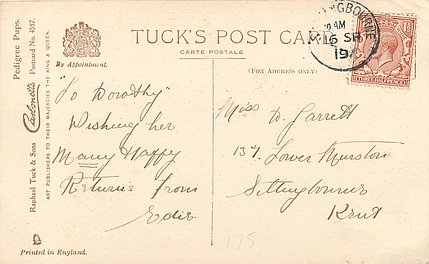 TUCK'S POST CARD
CARTE POSTALE
By Appointment.
(FOR ADDRESS ONLY)
Raphael Tuck & Sons "Carbonette" Postcard No. 4587. Pedigree Pups.
ART PUBLISHERS TO THEIR MAJESTIES THE KING & QUEEN.
"To Dorothy"
Wishing her
Many Happy
Returns from
Edie
Miss D. Garrett
137 Lower Murston
Sittingbourne
Kent
175
Printed in England.
THREE HALFPENCE
AM
SP
19